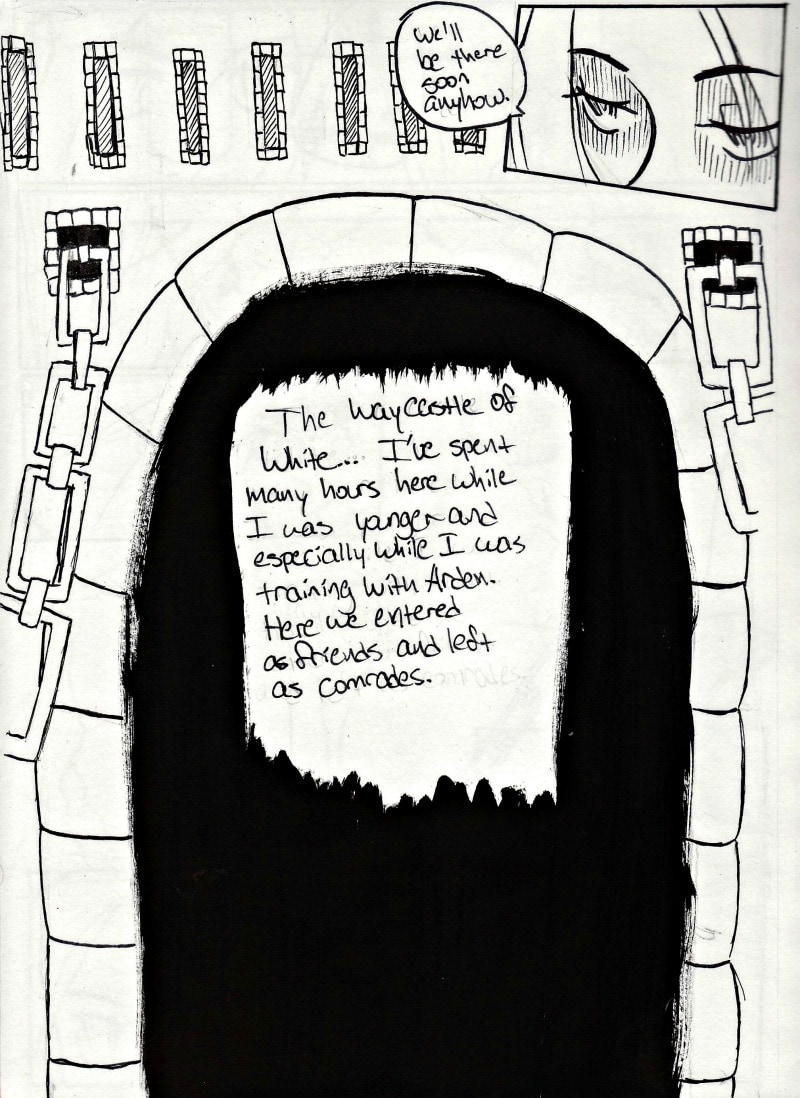 We'll
be there
soon
anyhow.
The Waycastle of
White... I've spent
many hours here while
I was yanger and
especially while I was
training with Arden.
Here we entered
as friends and left
as comrades.